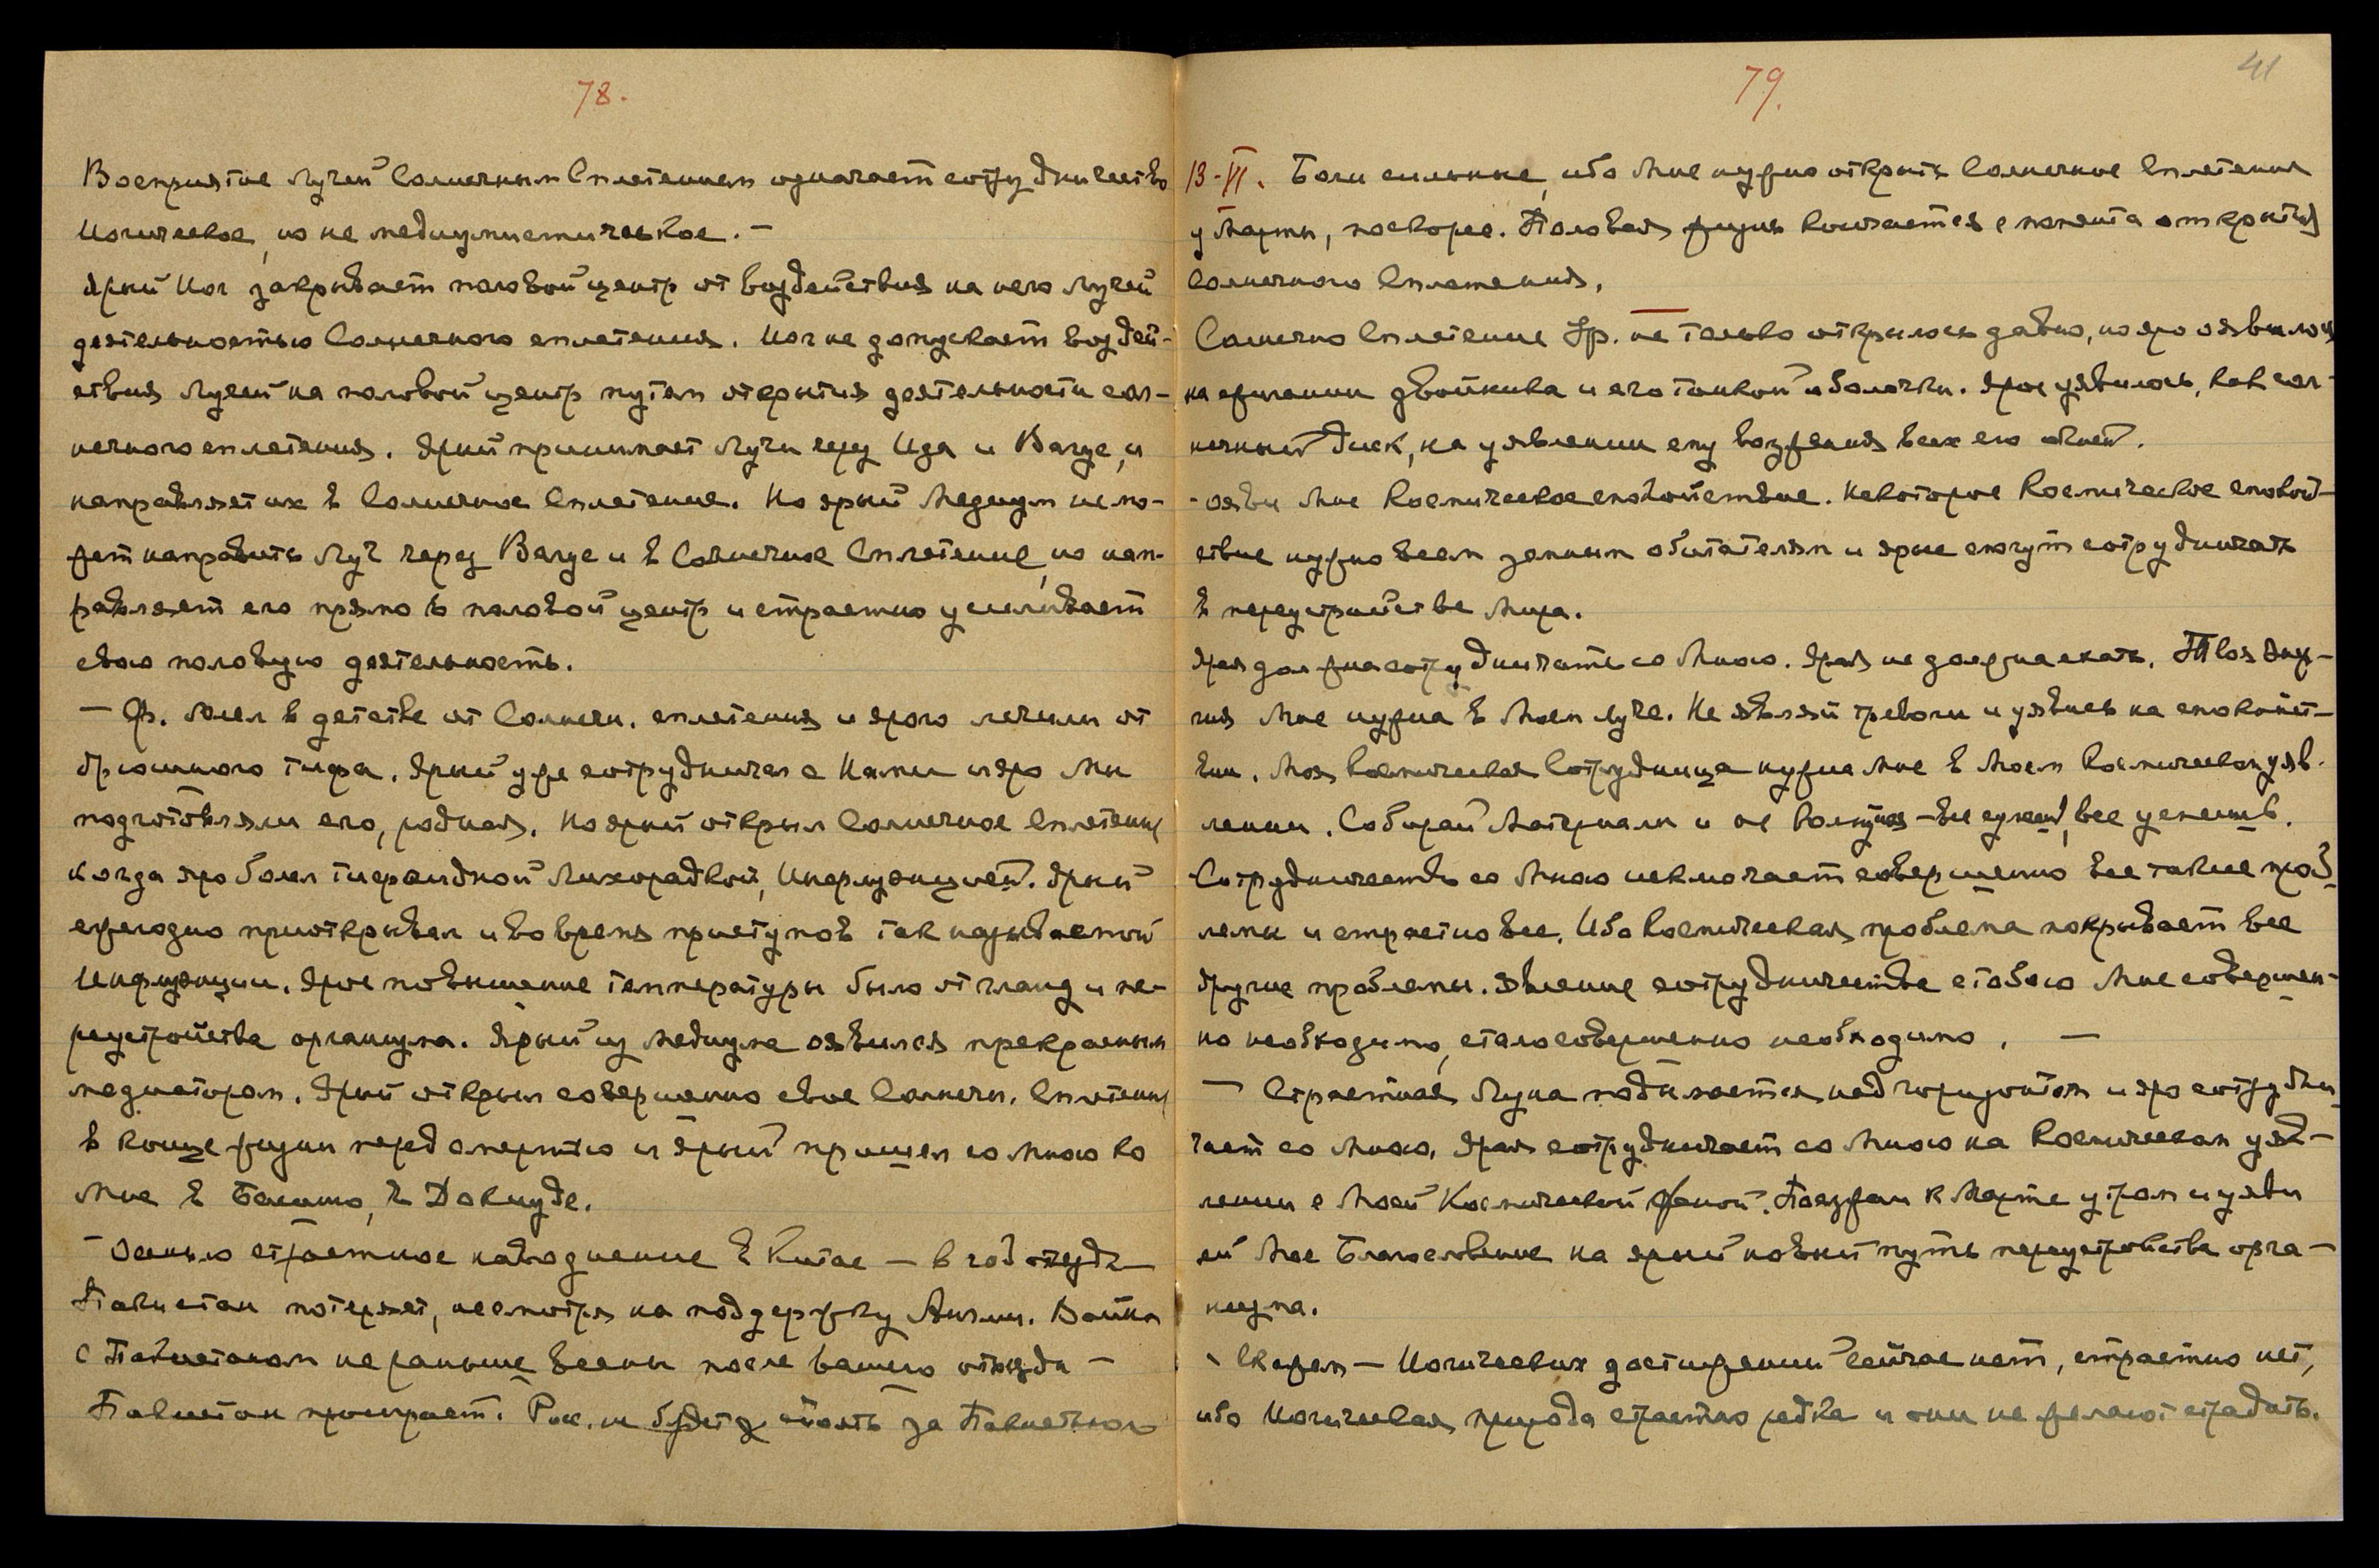 78.
Восприятие Лучей Солнечным Сплетением означает сотрудничество
Йогическое, но не медиумистическое. —
Ярый Йог закрывает половой центр от воздействия на него Лучей
деятельностью Солнечного сплетения. Йог не допускает воздей-
ствия Лучей на половой центр путем открытия деятельности сол-
нечного сплетения. Ярый принимает Лучи через Ида и Вагус, и
направляет их в Солнечное Сплетение. Но ярый Медиум не мо-
жет направить Луч через Вагус и в Солнечное Сплетение, но нап-
равляет его прямо в половой центр и страстно усиливает
свою половую деятельность.
— Ф. болел в детстве от Солнечн. сплетения и ярого лечили от
брюшного тифа. Ярый уже сотрудничал с Нами и яро Мы
подготовляли его, родная. Но ярый открыл Солнечное Сплетение
когда яро болел тифоидной лихорадкой, Инфлуэнцией. Ярый
ежегодно приоткрывал и во время приступов так называемой
Инфлуэнции. Ярое повышение температуры было от гланд и пе-
реустройства организма. Ярый из медиума оявился прекрасным
медиатором. Ярый открыл совершенно свое Солнечн. Сплетение
в конце жизни перед смертью и ярый пришел со Мною ко
Мне в Башню, в Докиуде.
— Осенью страстное наводнение в Китае — в год отъезда
Пакистан потеряет, несмотря на поддержку Англии. Война
с Пакистаном не раньше весны после вашего отъезда —
Пакистан проиграет. Рос. не будет стоять за Пакистаном
79.
41
13-VI. Боли сильные, ибо Мне нужно открыть Солнечное Сплетения
у Марты, поскорее. Половая жизнь кончается с момента открытия
Солнечного Сплетения.
Солнечно Сплетение Ур. не только открылось давно, но яро оявилось
на сжигании двойника и его тонкой оболочки. Ярое уявилось, как сол-
нечный Диск, на уявлении ему возжения всех его огней.
- Ояви Мне Космическое спокойствие. Некоторое Космическое спокой-
ствие нужно всем земным обитателям и ярые смогут сотрудничать
в переустройстве Мира.
Ярая должна сотрудничать со Мною. Ярая не должна искать. Твоя Энер-
гия Мне нужна в Моем Луче. Не являй тревоги и уявись на спокойст-
вии. Моя Космическая Сотрудница нужна Мне в Моем Космическом уяв-
лении. Собирай Материалы и не волнуйся — все сумеешь, все успеешь.
Сотрудничество со Мною исключает совершенно все такие проб-
лемы и страстно все. Ибо Космическая проблема покрывает все
другие проблемы. Явление сотрудничества с тобою Мне совершен-
но необходимо, стало совершенно необходимо. —
— Страстная Луна подымается над горизонтом и яро сотрудни-
чает со Мною. Ярая сотрудничает со Мною на Космическом уяв-
лении с Моей Космической Женой. Поезжай к Марте утром и уяви
ей Мое Благословение на ярый новый путь переустройства орга-
низма.
Скажем — Йогических достижений сейчас нет, страстно нет,
ибо Йогическая природа страстно редка и они не желают страдать.